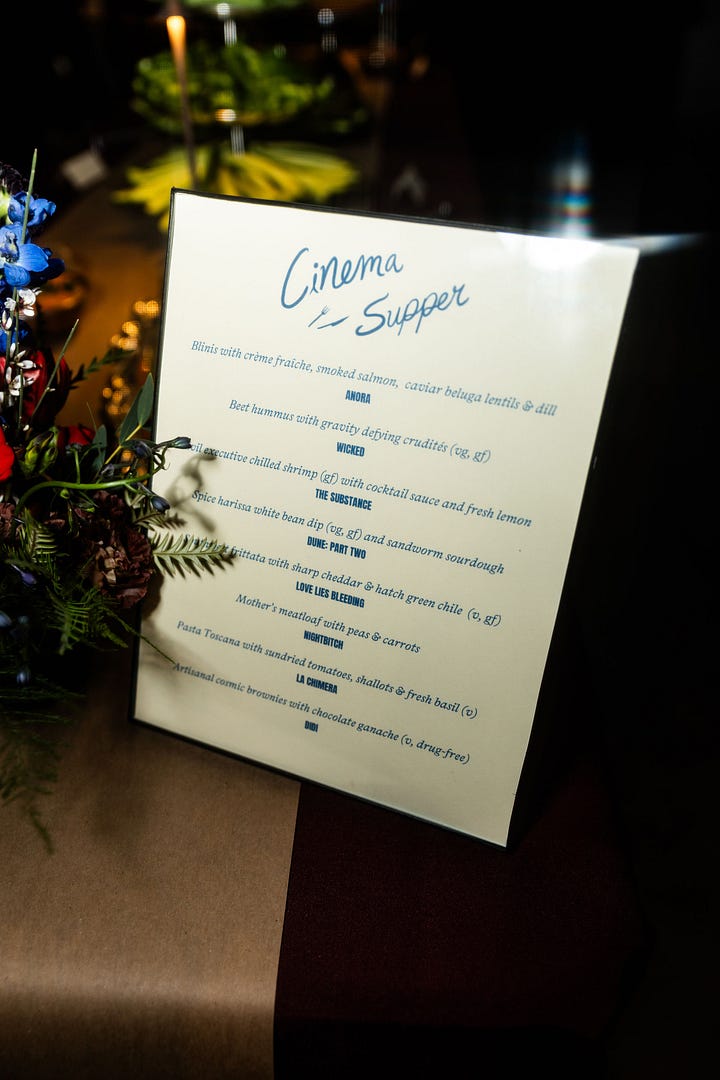 Cinema
Supper
Blinis with crème fraîche, smoked salmon, caviar beluga lentils & dill
ANORA
Beet hummus with gravity defying crudités (vg, gf)
WICKED
executive chilled shrimp (gf) with cocktail sauce and fresh lemon
THE SUBSTANCE
Spice harissa white bean dip (vg, gf) and sandworm sourdough
DUNE: PART TWO
frittata with sharp cheddar & hatch green chile (v, gf)
LOVE LIES BLEEDING
Mother's meatloaf with peas & carrots
NIGHTBITCH
Pasta Toscana with sundried tomatoes, shallots & fresh basil (v)
LA CHIMERA
Artisanal cosmic brownies with chocolate ganache (v, drug-free)
DIDI